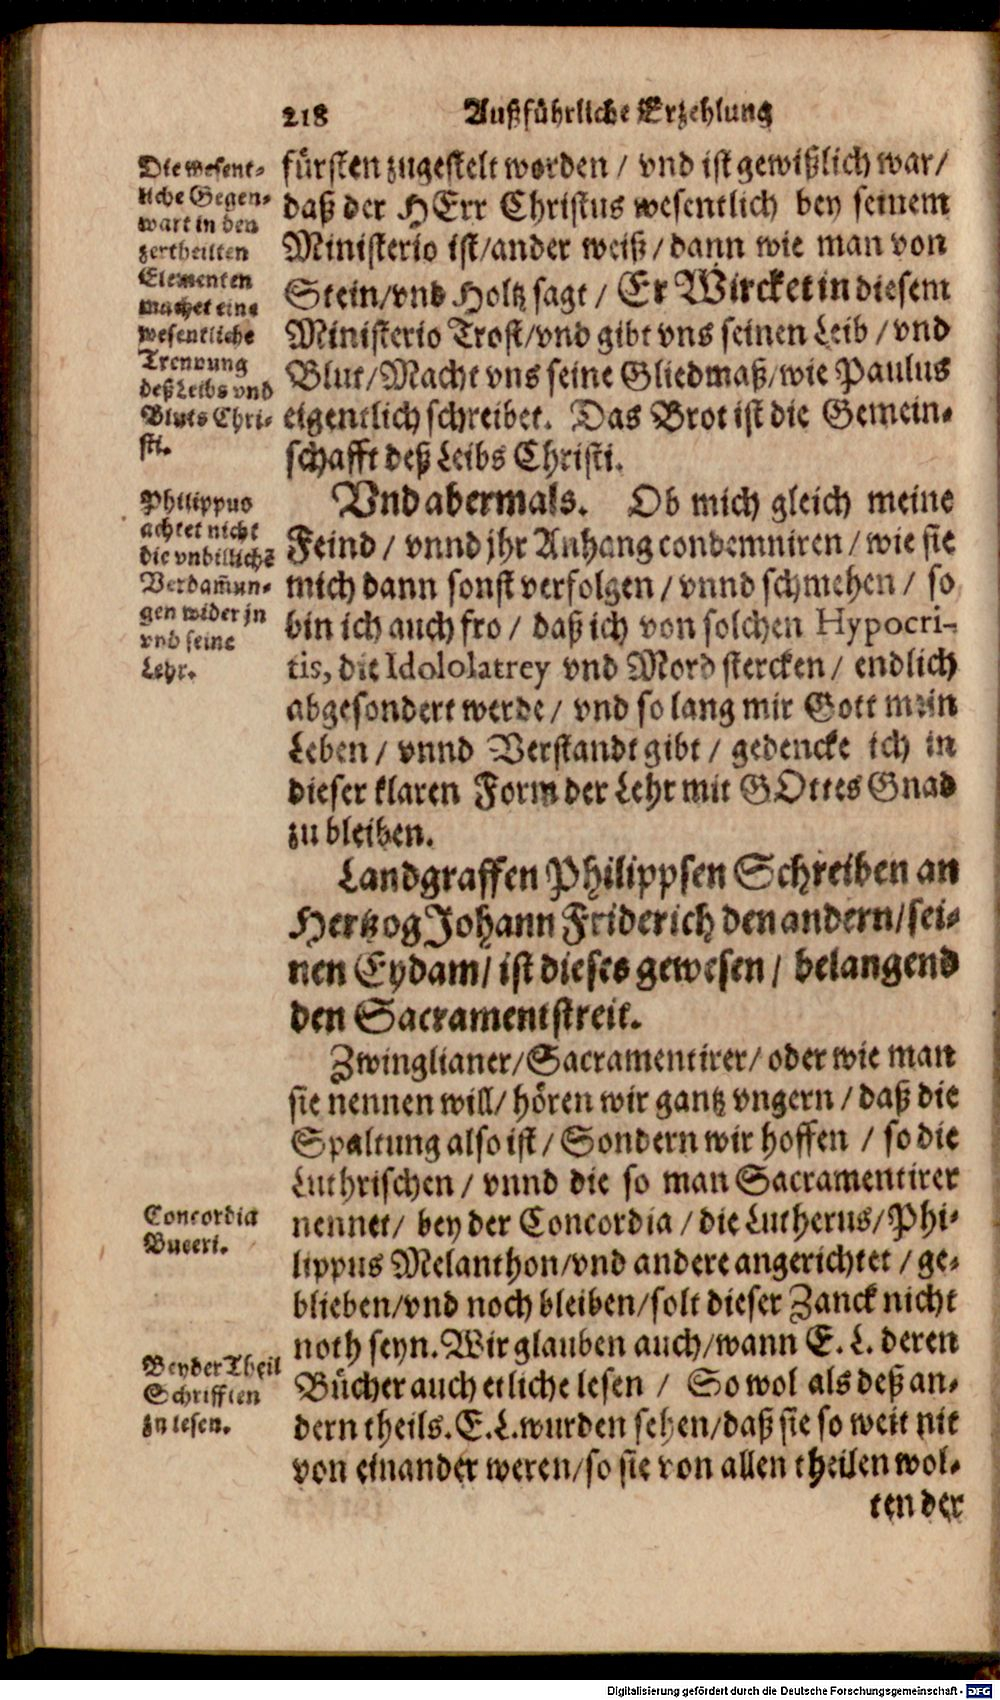 218 Außführliche Erzehlung
Die wesent-
liche Gegen-
wart in den
zertheilten
Elementen
machet eine
wesentliche
Trennung
deß Leibs vnd
Bluts Chri-
sti.
fürsten zugestelt worden / vnd ist gewißlich war /
daß der HErr Christus wesentlich bey seinem
Ministerio ist / ander weiß / dann wie man von
Stein / vnd Holtz sagt / Er Wircket in diesem
Ministerio Trost / vnd gibt vns seinen Leib / vnd
Blut / Macht vns seine Gliedmaß / wie Paulus
eigentlich schreibet. Das Brot ist die Gemein-
schafft deß Leibs Christi.
Philippus
achtet nicht
die vnbillichē
Verdam̃un-
gen wider jn
vnd seine
Lehr.
Vnd abermals. Ob mich gleich meine
Feind / vnnd jhr Anhang condemniren / wie sie
mich dann sonst verfolgen / vnnd schmehen / so
bin ich auch fro / daß ich von solchen Hypocri-
tis, die Idololatrey vnd Mord stercken / endlich
abgesondert werde / vnd so lang mir Gott mein
Leben / vnnd Verstandt gibt / gedencke ich in
dieser klaren Form der Lehr mit GOttes Gnad
zu bleiben.
Landgraffen Philippsen Schreiben an
Hertzog Johann Friderich den andern / sei-
nen Eydam / ist dieses gewesen / belangend
den Sacramentstreit.
Zwinglianer / Sacramentirer / oder wie man
sie nennen will / hören wir gantz vngern / daß die
Spaltung also ist / Sondern wir hoffen / so die
Luthrischen / vnnd die so man Sacramentirer
nennet / bey der Concordia / die Lutherus / Phi-
lippus Melanthon / vnd andere angerichtet / ge-
blieben / vnd noch bleiben / solt dieser Zanck nicht
noth seyn. Wir glauben auch / wann E. L. deren
Bücher auch etliche lesen / So wol als deß an-
dern theils. E. L. wurden sehen / daß sie so weit nit
von einander weren / so sie von allen theilen wol-
Concordia
Buceri.
Beyder Theil
Schrifften
zu lesen.
ten der
Digitalisierung gefördert durch die Deutsche Forschungsgemeinschaft - DFG